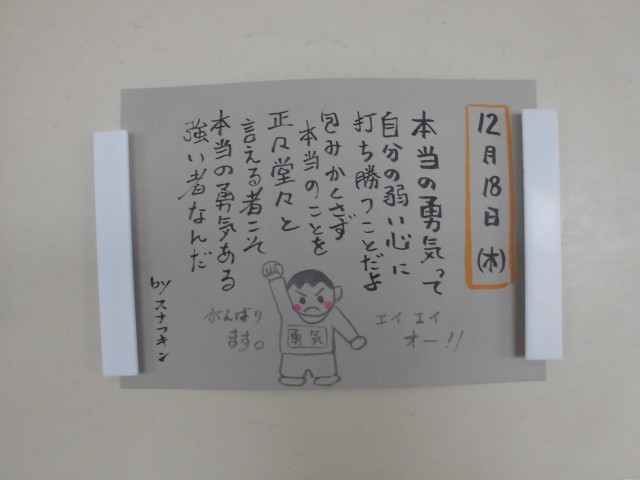 12月18日(木)
本当の勇気って
自分の弱い心に
打ち勝つことだよ
包みかくさず
本当のことを
正々堂々と
言える者こそ
本当の勇気ある
強い者なんだ
byスナフキン
エイエイ
オー!!
勇気
がんばり
ます。